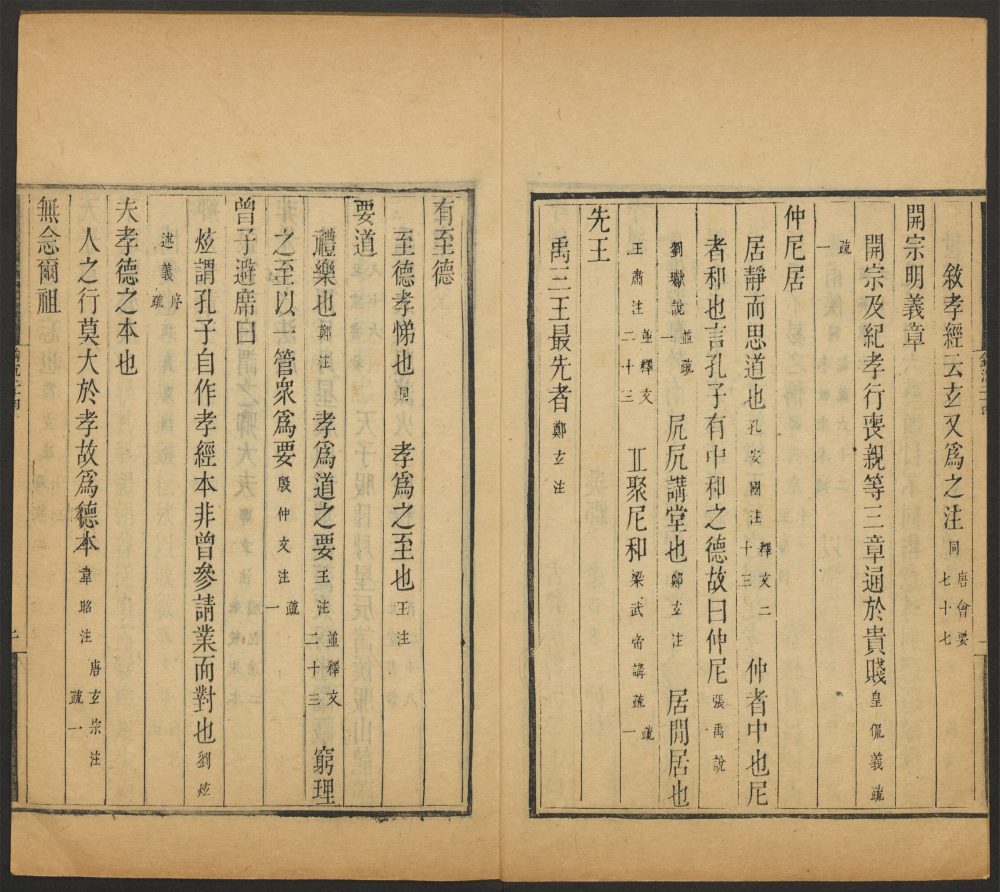 敘孝經云玄又爲之注同唐會要七十七
開宗明義章
開宗及紀孝行喪親等三章通於貴賤皇侃義疏
疏一
仲尼居
居靜而思道也孔安國注釋文二十三 仲者中也尼
者和也言孔子有中和之德故曰仲尼張禹說
劉瓛說並疏一 凥凥講堂也鄭玄注 居閒居也
王肅注並釋文二十三 丠聚尼和梁武帝講疏疏一
先王
禹三王最先者鄭玄注
有至德
至德孝悌也 孝爲之至也王注
要道
禮樂也鄭注 孝爲道之要王注並釋文二十三 窮理
之至以一管衆爲要殷仲文注疏一
曾子避席曰
炫謂孔子自作孝經本非曾參請業而對也劉炫
述義序疏
夫孝德之本也
人之行莫大於孝故爲德本韋昭注 唐玄宗注疏一
無念爾祖